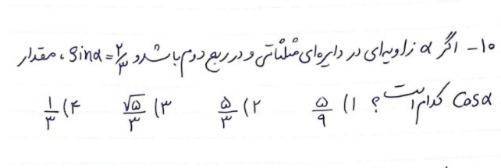 ۱۰- اگر α زاویه‌ای در دایره‌ای مثلثاتی و در ربع دوم باشد و sinα = ۲/۳، مقدار
cosα کدام است؟ ۱) ۵/۹ ۲) ۵/۳ ۳) √۵/۳ ۴) ۱/۳